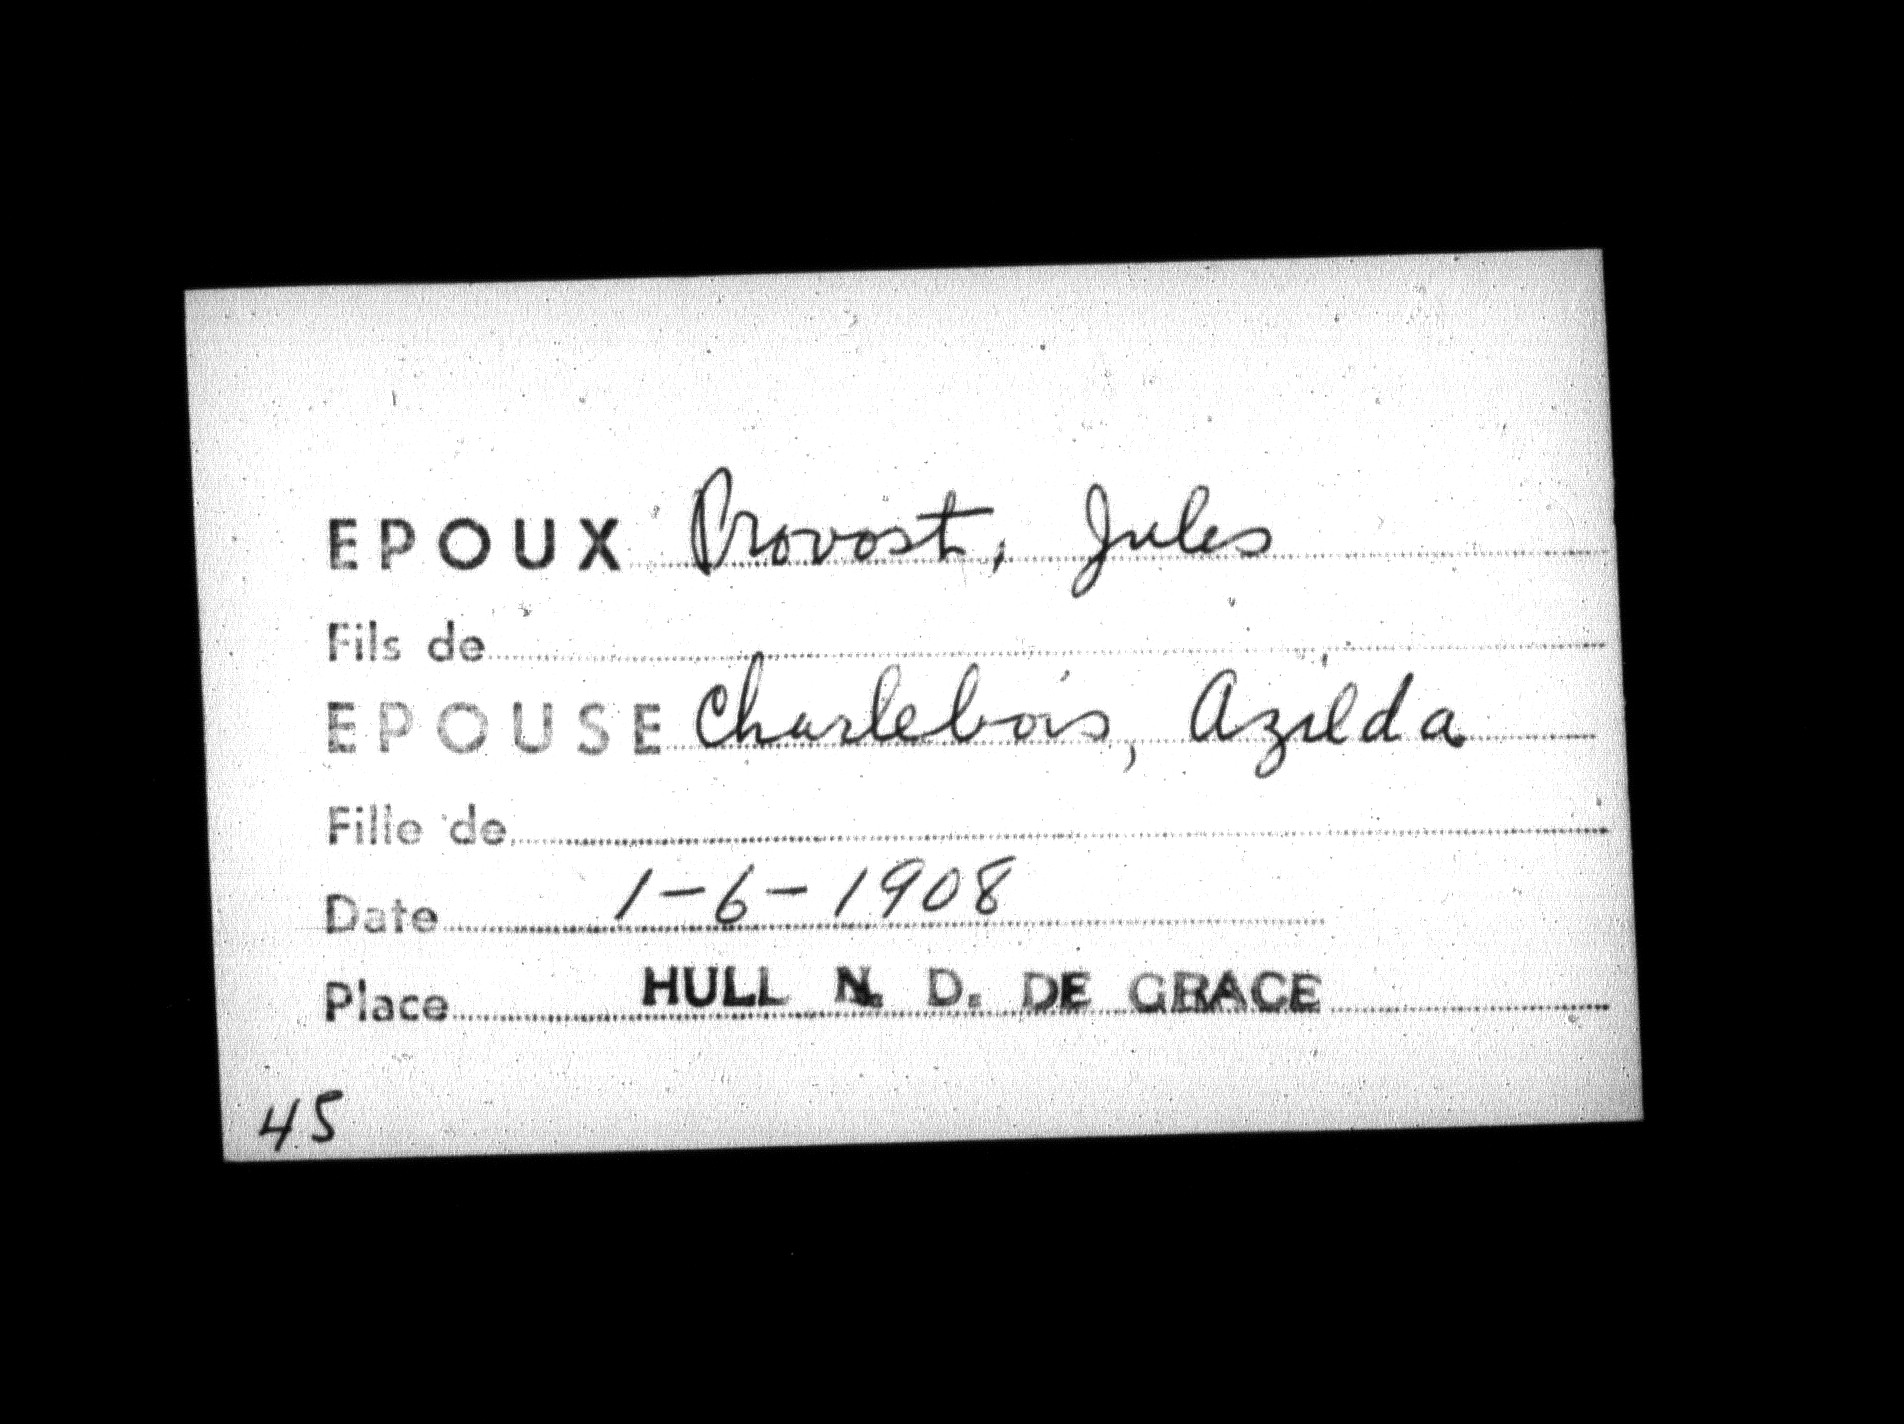 EPOUX Provost, Jules
Fils de
EPOUSE Charlebois, Azilda
Fille de
Date 1-6-1908
Place HULL N. D. DE GRACE
45